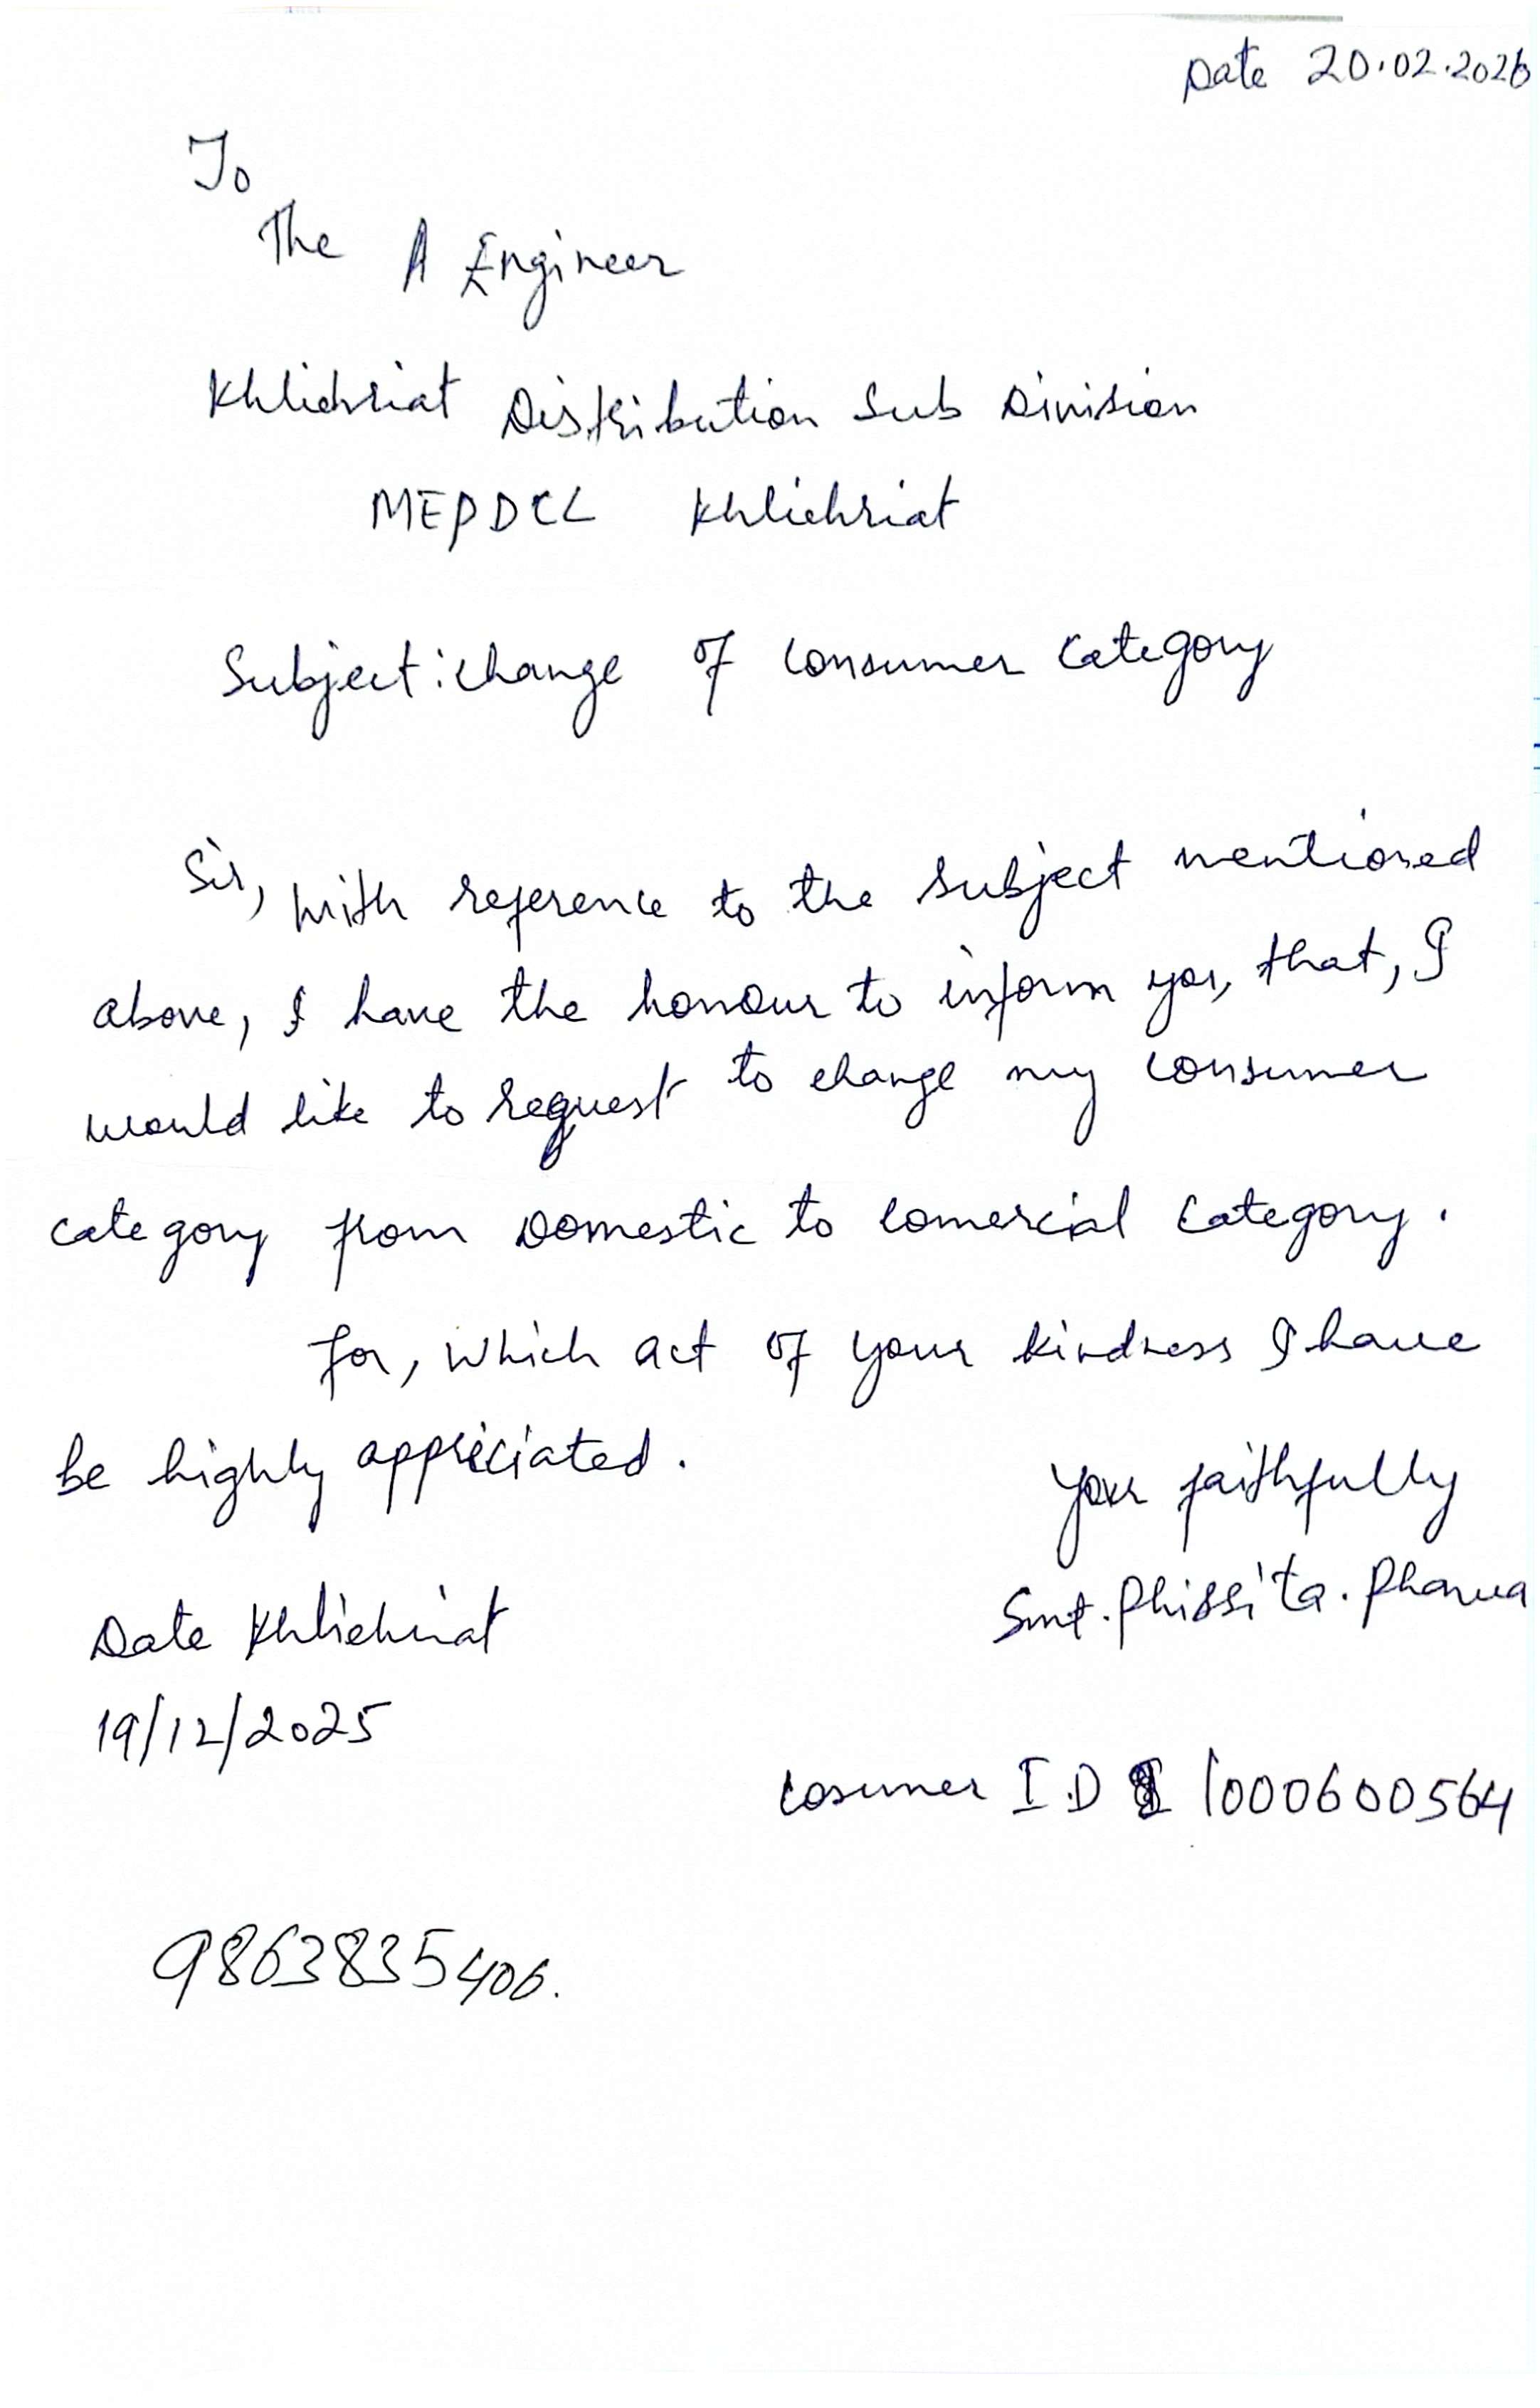 Date 20.02.2026
To
The A Engineer
Khliehriat Distribution Sub Division
MEPDCL Khliehriat
Subject: change of consumer category
Sir, with reference to the subject mentioned
above, I have the honour to inform you, that, I
would like to request to change my consumer
category from Domestic to comercial category.
for, which act of your kindness I have
be highly appriciated.
Your faithfully
Smt. Phissita. Pharwa
Date Khliehriat
19/12/2025
Cosumer I.D 1000600564
9863835406.